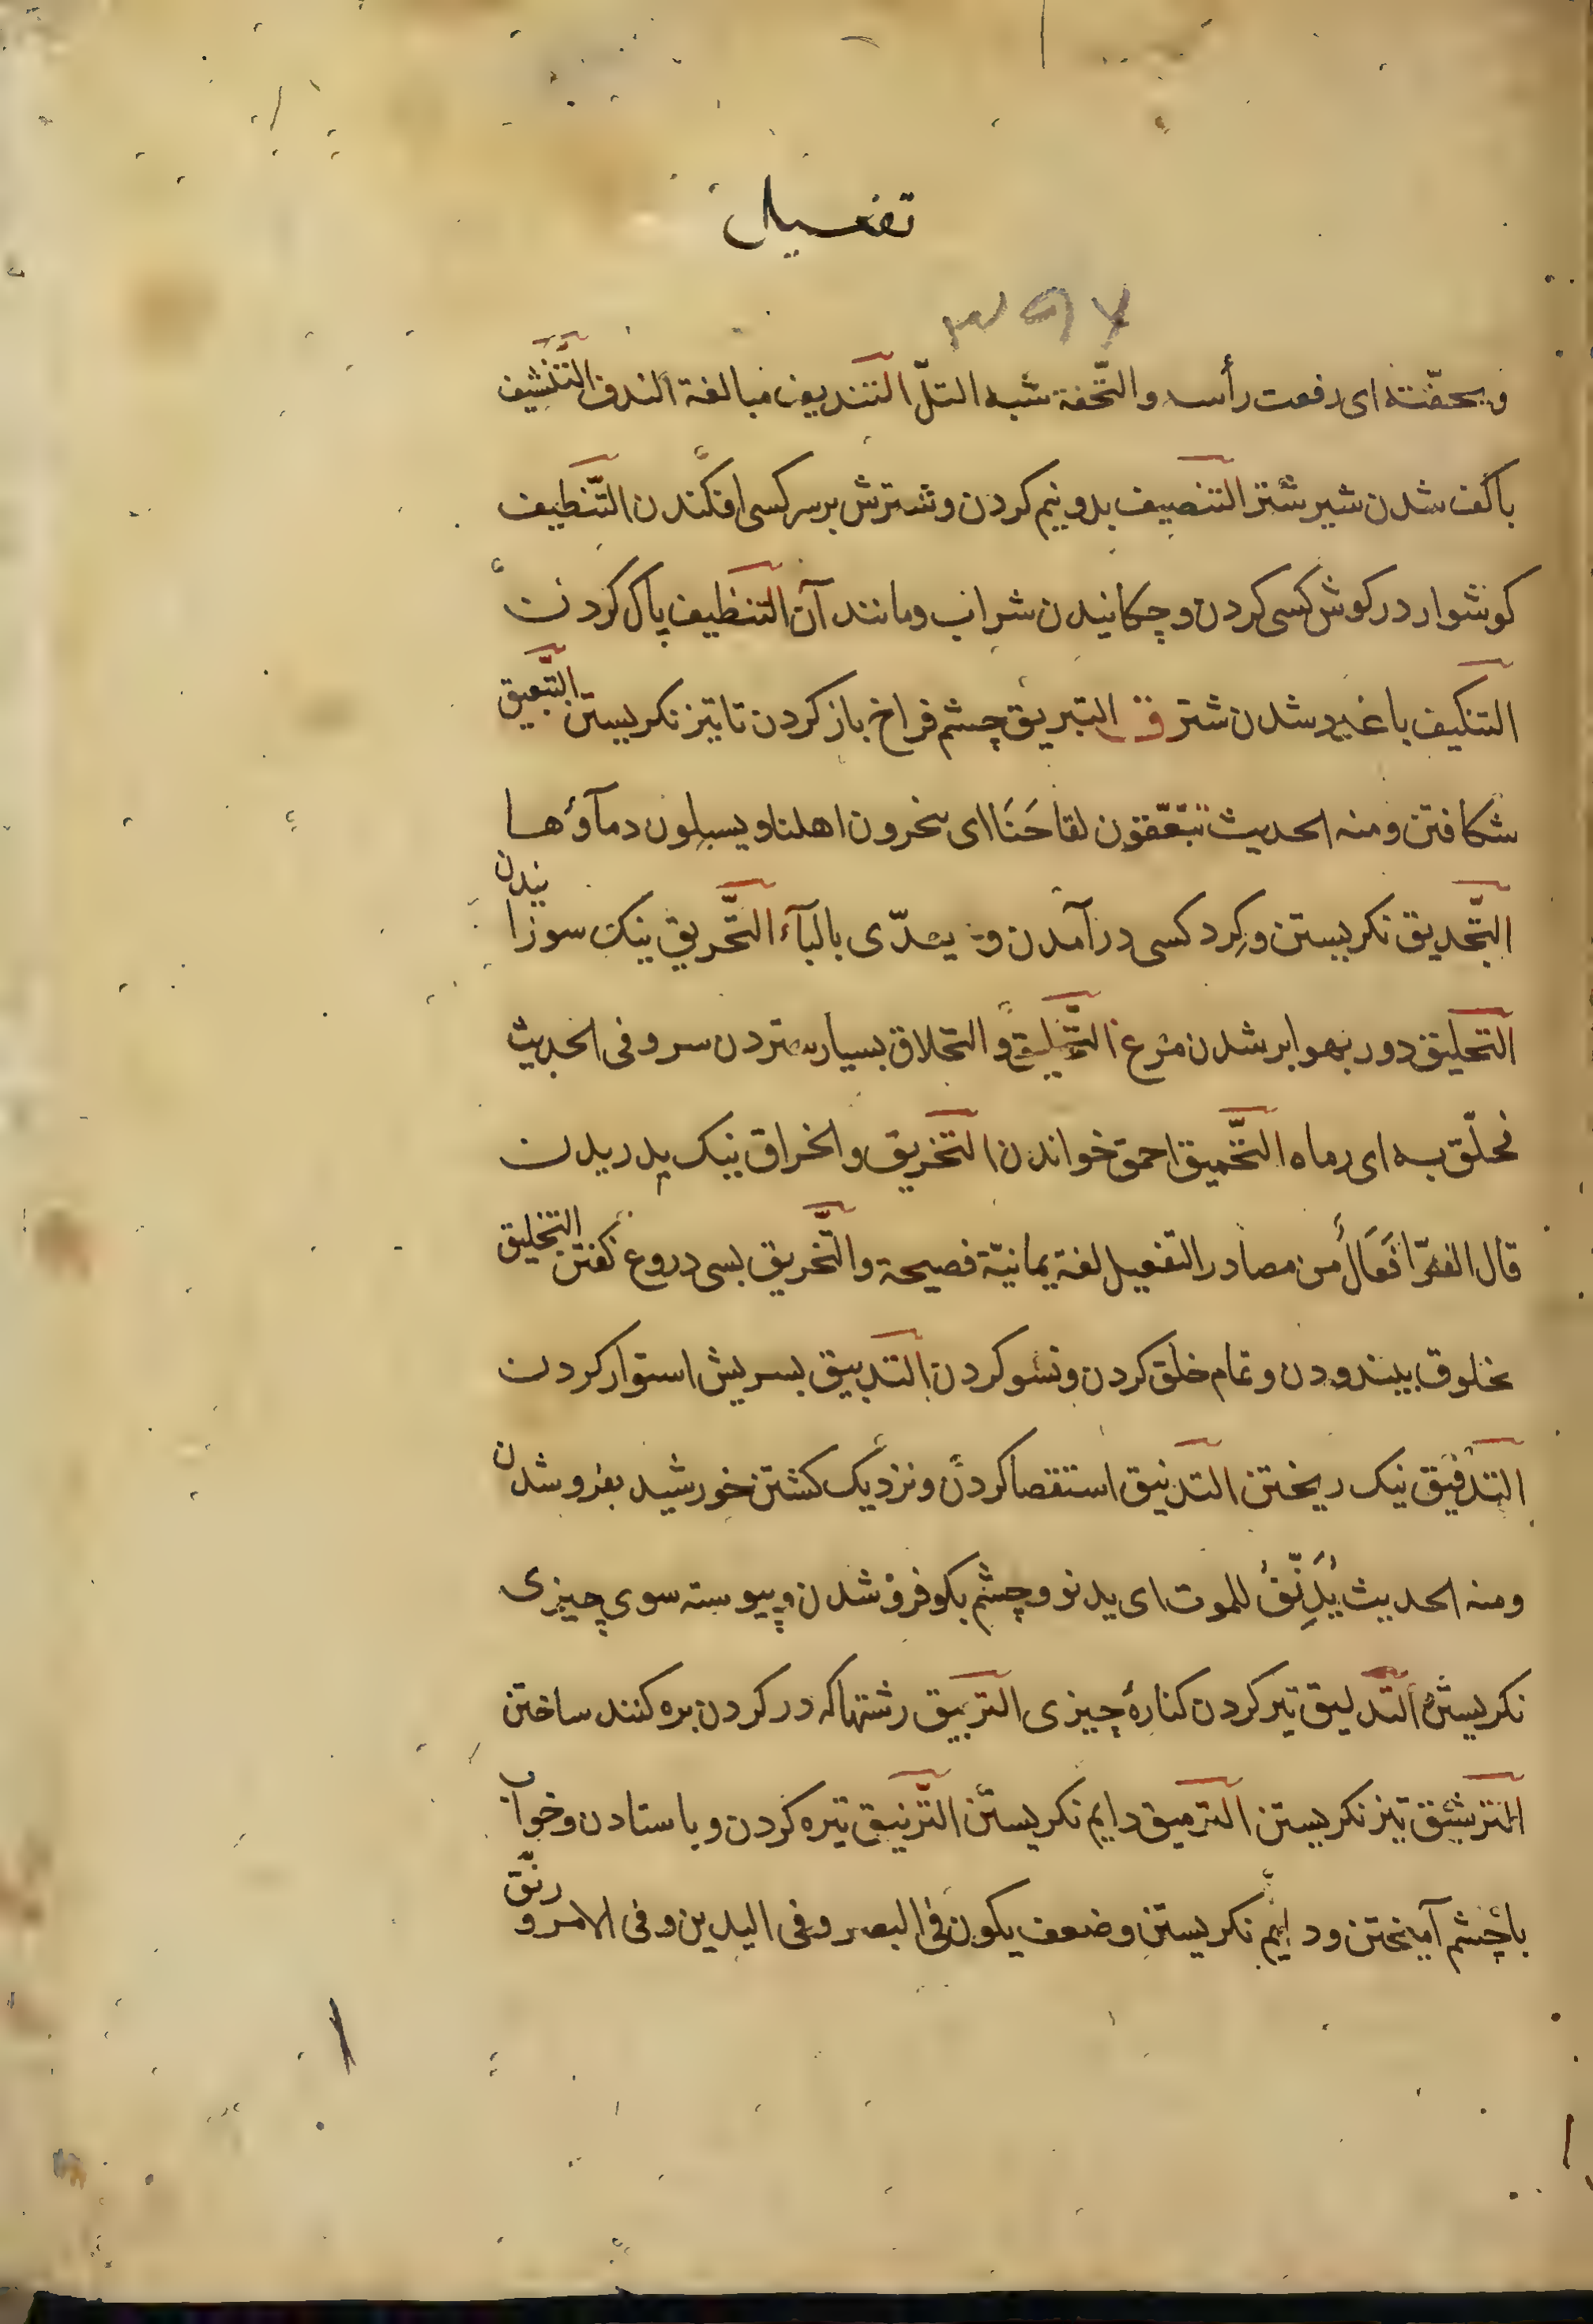 تفعیل
۳۹۷
ویحفّته ای رفعت رأسه والنّحفة شبه التلّ التندیف مبالغة الندف التّنشیف
باکف شدن شیر شتر التنصیف بدو نیم کردن و شترش بر سر کسی افکندن التّنطیف
کوشوار در کوش کسی کردن و چکانیدن شراب و مانند آن التنظیف پاک کردن
التنکیف باغدد شدن شتر ق التبریق چشم فراخ باز کردن تا تیز نکریستن التّبعیق
شکافتن ومنه الحدیث تبعّقون لقاحَنَا ای ینحرون اهلنا ویسیلون دمآؤها
التّحدیق نکریستن و کرد کسی درآمدن و یعدّی بالبآء التّحریق نیک سوزانیدن
التحلیق دور بهوا بر شدن مرغ التّحلیق والتحلاق بسیار ستردن سر وفی الحدیث
فحلّق به ای رماه التّحمیق احمق خواندن التّخریق والخراق نیک بدریدن
قال الفرّا فَعَالٌ من مصادر التفعیل لغة یمانیّة فصیحة والتّخریق بسی دروغ کفتن التخلیق
بخلوق بیندودن و تمام خلق کردن و نسو کردن التدبیق بسریش استوار کردن
التّدفیق نیک ریختن التدنیق استقصا کردن و نزدیک کشتن خورشید بفرو شدن
ومنه الحدیث یُدَنِّقُ للموت ای یدنو و چشم بکو فرو شدن و پیوسته سوی چیزی
نکریستن التّدلیق تیز کردن کنارهٔ چیزی التّربیق رشتها که در کردن بره کنند ساختن
الترشیق تیز نکریستن الترمیق دایم نکریستن التّرنیق تیره کردن و باستادن و خواب
باچشم آمیختن و دایم نکریستن وضعف یکون فی البصر وفی الیدین وفی الامر و رنّق